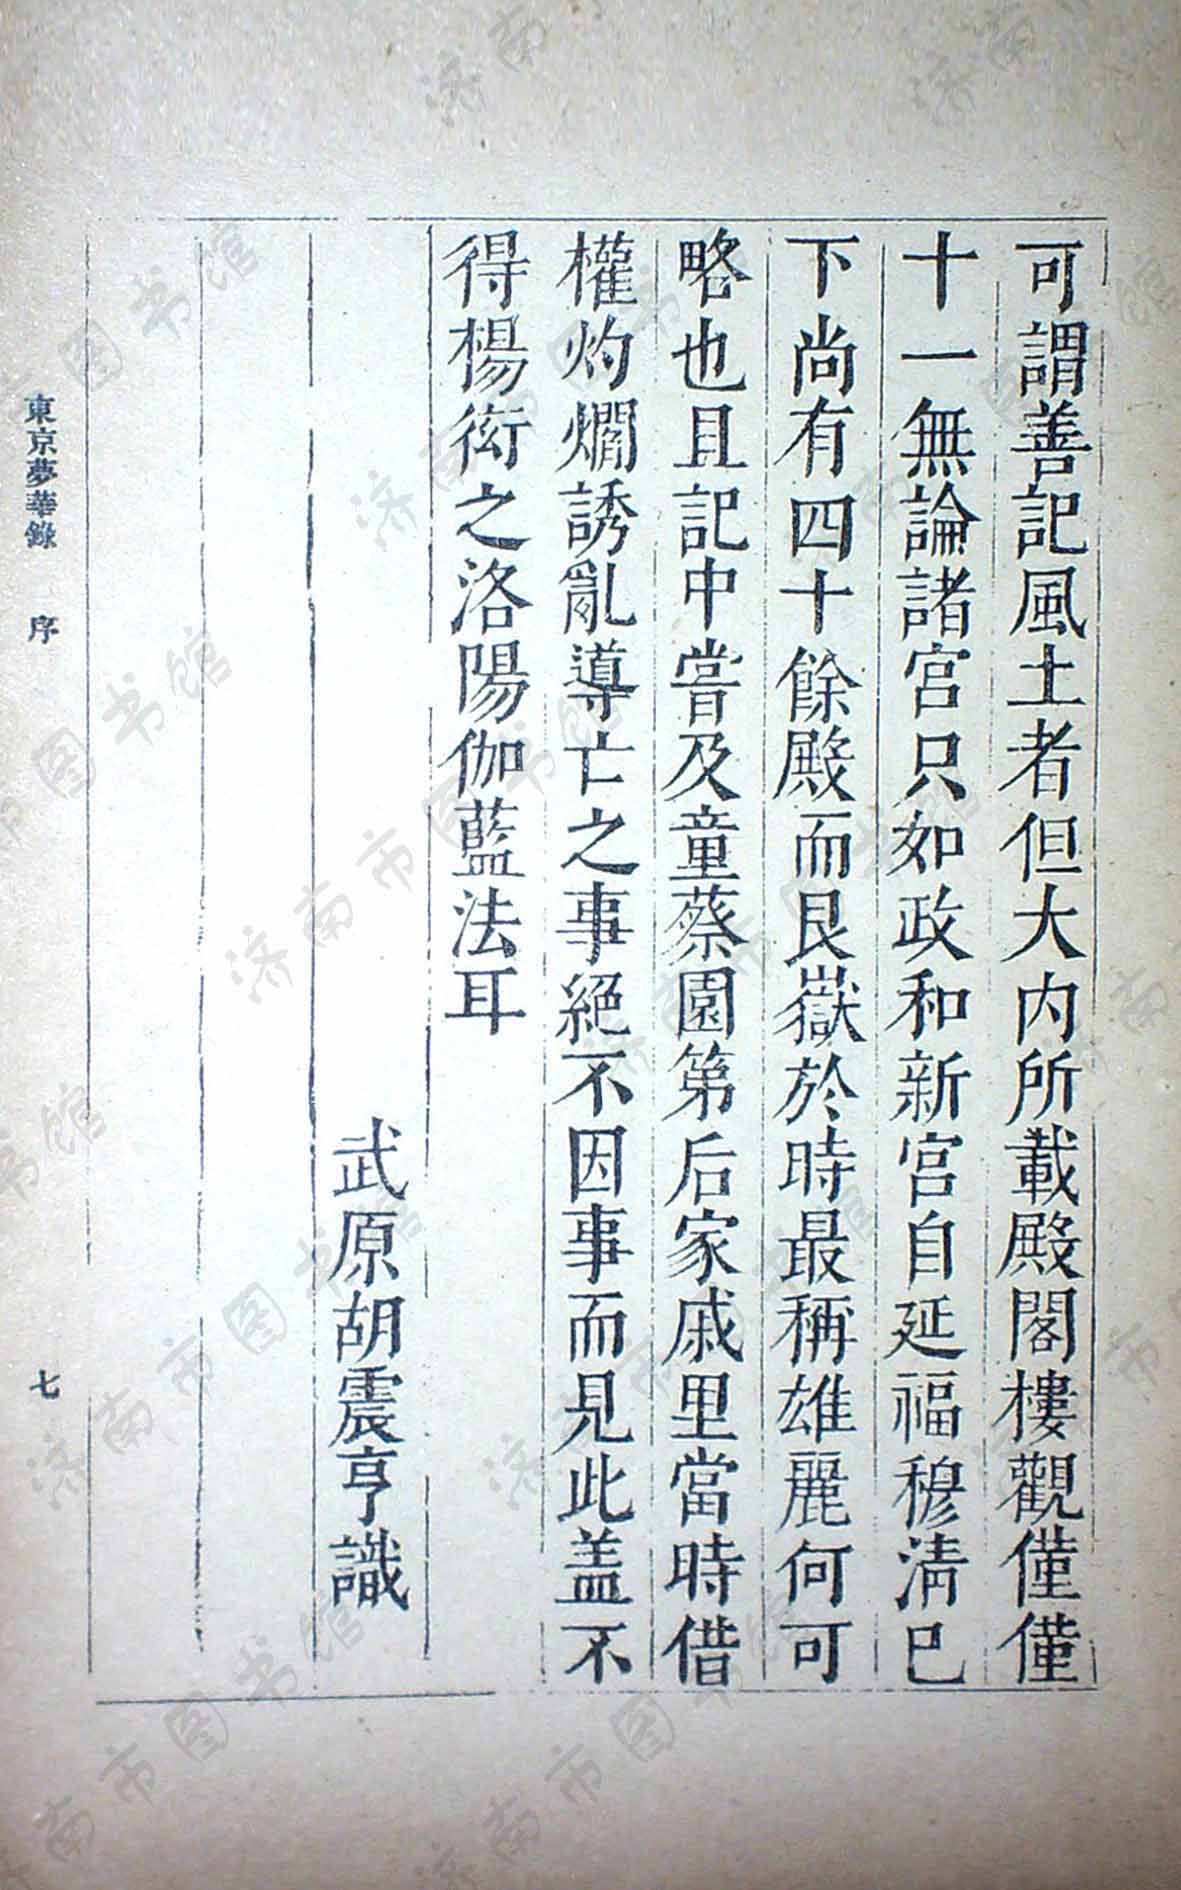 可謂善記風土者但大内所載殿閣樓觀僅僅
十一無論諸宮只如政和新宮自延福穆清已
下尚有四十餘殿而艮嶽於時最稱雄麗何可
略也且記中嘗及童蔡園第后家戚里當時借
權灼爓誘亂導亡之事絕不因事而見此盖不
得楊衒之洛陽伽藍法耳
武原胡震亨識
東京夢華錄 序
七
济南市图书馆